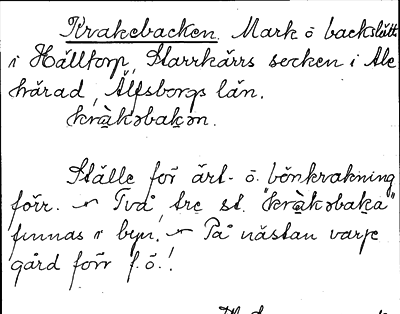 Krakebacken. Mark o backslätt
i Hälltorp, Starrkärrs socken i Ale
härad, Älfsborgs län.
krὰkəbakən.
Ställe för ärt- o. bönkrakning
förr. ~ Två, tre st. "krὰkəbaka"
finnas i byn. ~ På nästan varje
gård förr f. ö.!